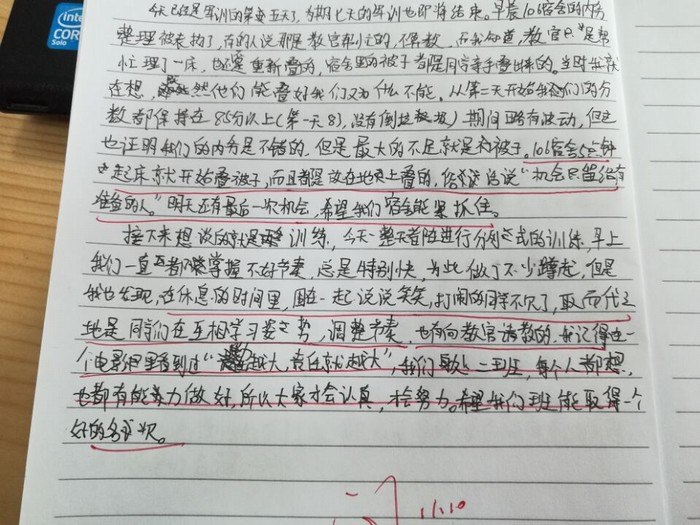 intel
CORE
Solo
今天已经是军训的第五天了,为期七天的军训也即将结束。早晨106宿舍的内务
整理被表扬了,有的人说那是教官帮忙的,偶数,而我知道,教官只是帮
忙理了一床,也还重新叠的,宿舍里的被子都是同学亲手叠出来的。当时我就
在想,既然他们能叠好我们又为什么不能。从第二天开始我们的内务分
数都保持在85分以上(第一天83,没有倒扣)期间略有波动,但这
也证明我们的内务是不错的,但是最大的不足就是被子。106宿舍5点钟
起床就开始叠被子,而且都是放在地上叠的,俗话说"机会只留给有
准备的人。"明天还有最后一次机会,希望我们宿舍能抓住。
接下来想说的就是训练,今天一整天都在进行分列式的训练,早上
我们一直都掌握不好节奏,总是特别快,为此做了不少蹲起,但是
我也发现,在休息的时间里,围在一起说说笑笑,打闹的同学不见了,取而代之
地是同学们在互相学习姿势,调整步奏,也有向教官请教的。我记得在一
个电影里看到过"越大,责任就越大",我们二班,每个人都想,
也都有能力做好,所以大家才会认真,才会努力。希望我们班能取得一个
好的名次。
11.10